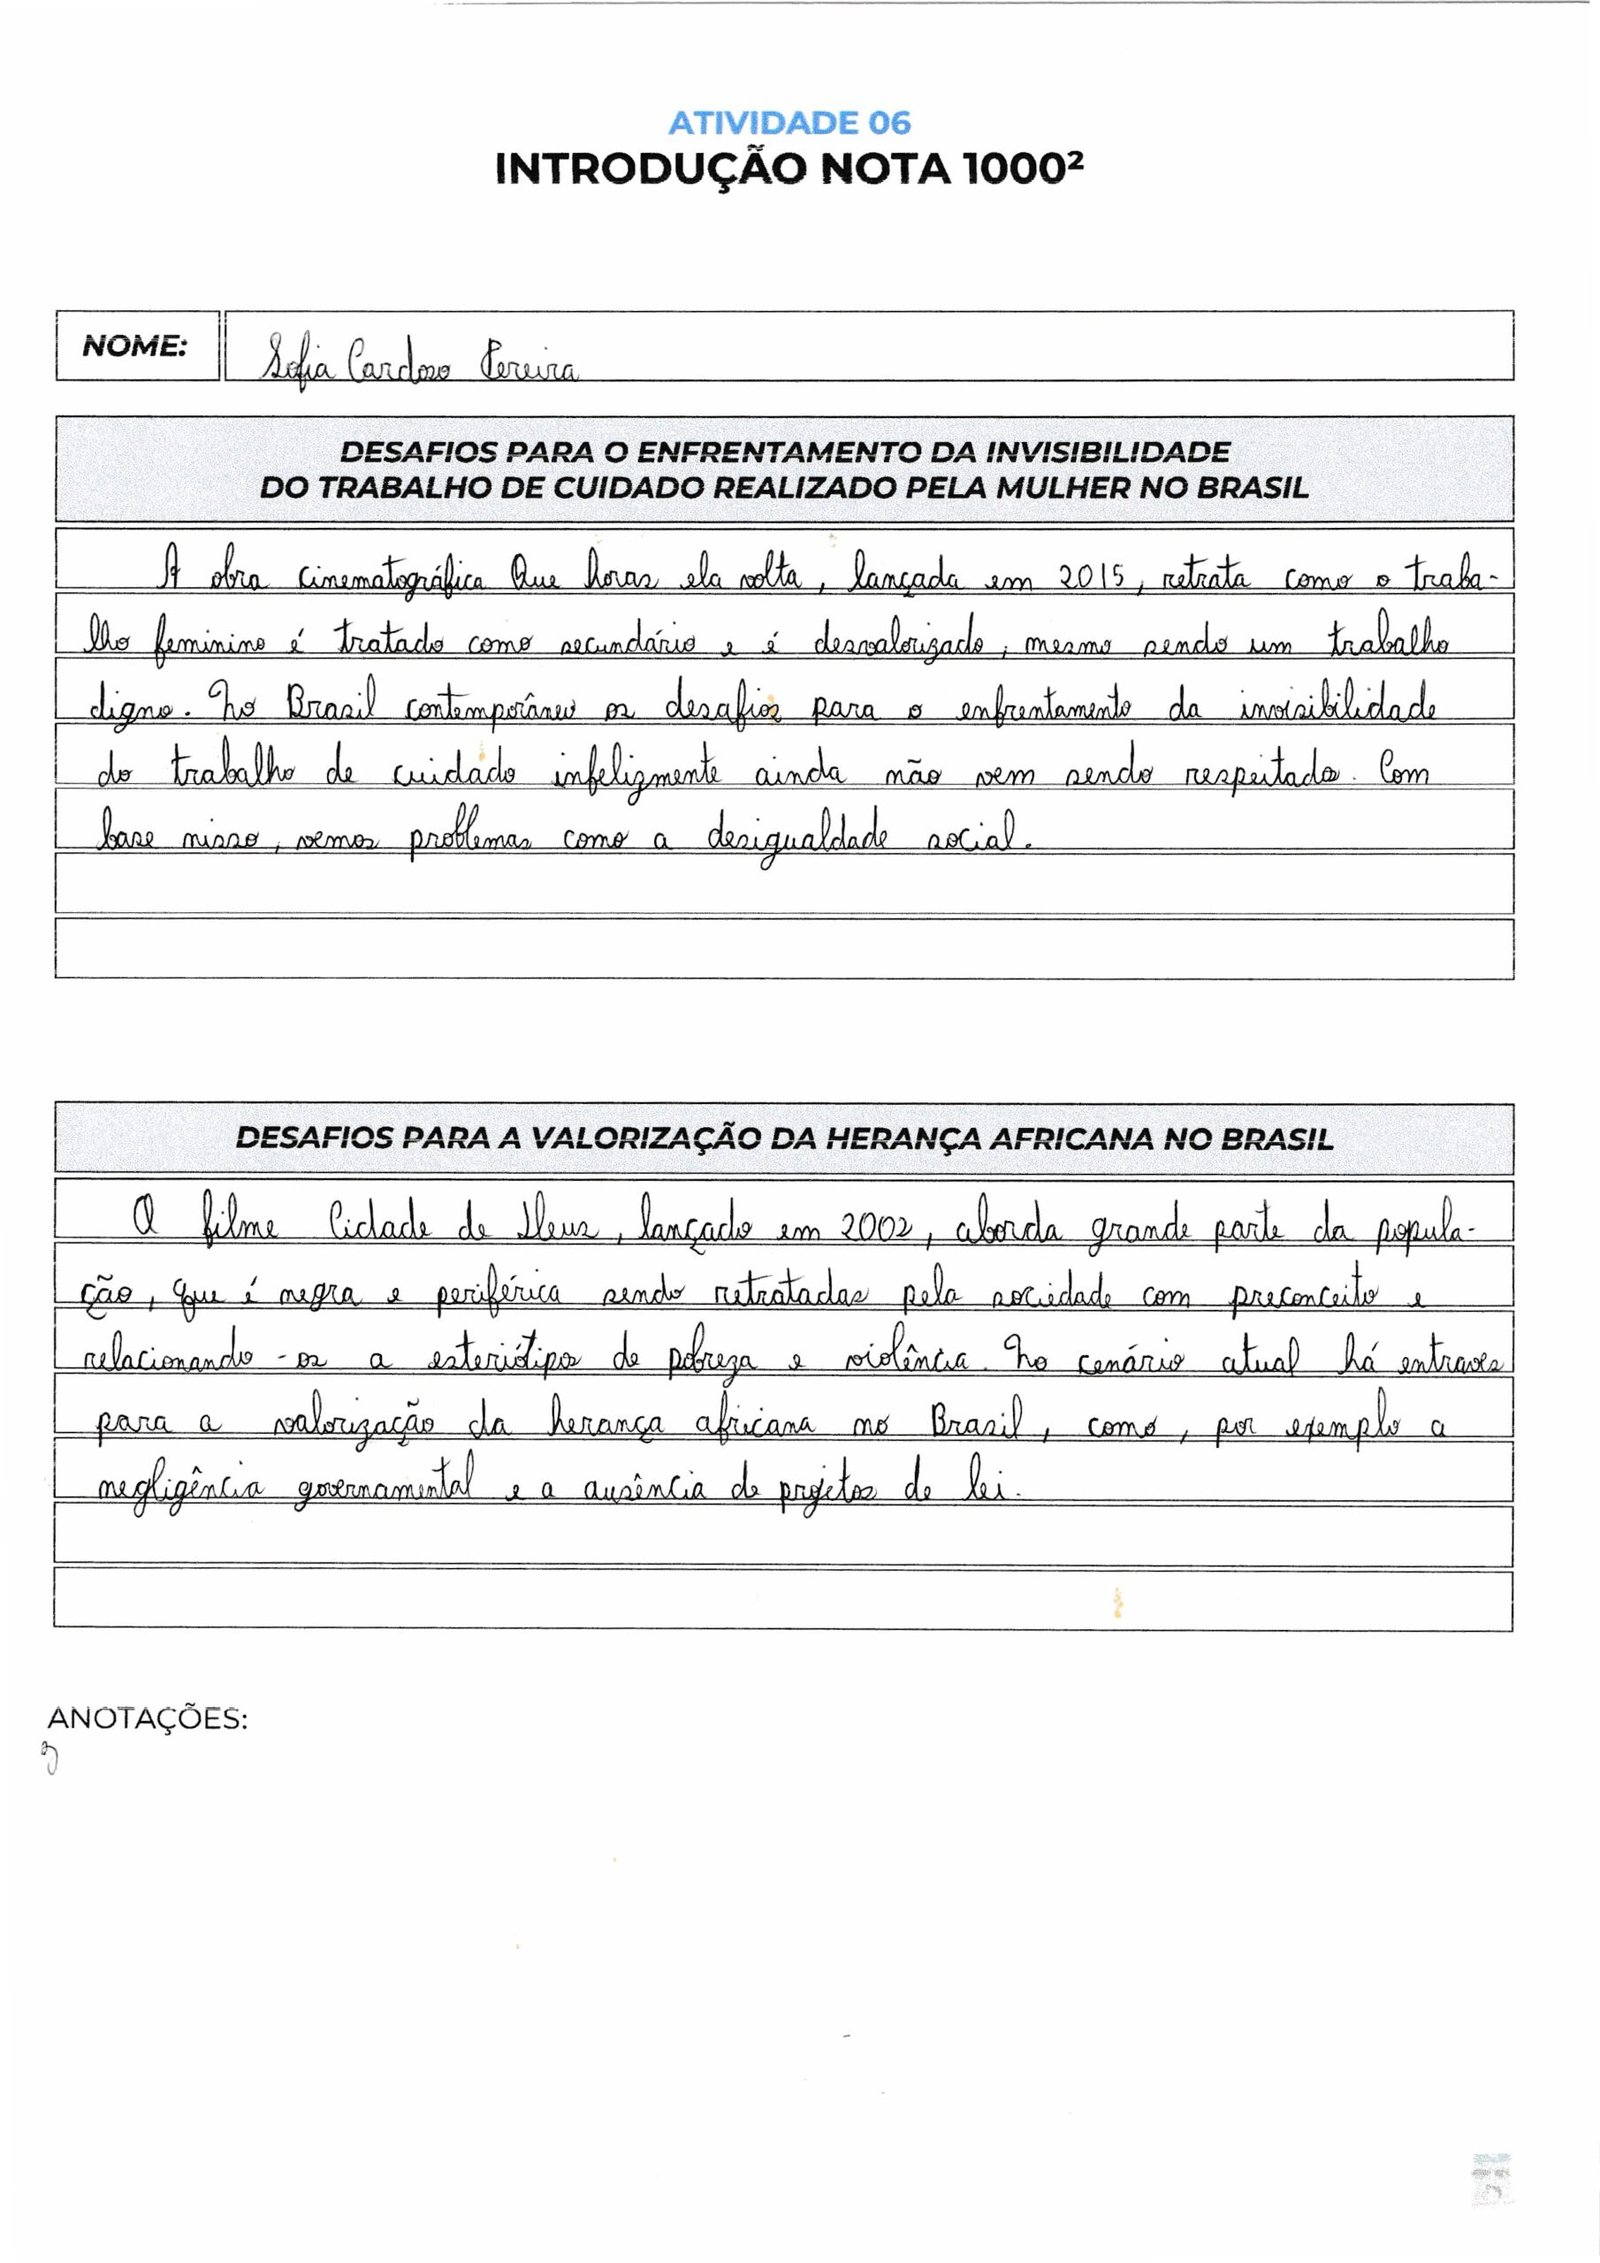 ATIVIDADE 06
INTRODUÇÃO NOTA 1000²
NOME: Sofia Cardoso Pereira
DESAFIOS PARA O ENFRENTAMENTO DA INVISIBILIDADE
DO TRABALHO DE CUIDADO REALIZADO PELA MULHER NO BRASIL
A obra cinematográfica Que horas ela volta, lançada em 2015, retrata como o traba-
lho feminino é tratado como secundário e é desvalorizado, mesmo sendo um trabalho
digno. No Brasil contemporâneo os desafios para o enfrentamento da invisibilidade
do trabalho de cuidado infelizmente ainda não vem sendo respeitado. Com
base nisso, vemos problemas como a desigualdade social.
DESAFIOS PARA A VALORIZAÇÃO DA HERANÇA AFRICANA NO BRASIL
O filme Cidade de Deus, lançado em 2002, aborda grande parte da popula-
ção, que é negra e periférica sendo retratadas pela sociedade com preconceito e
relacionando-os a esteriótipos de pobreza e violência. No cenário atual há entraves
para a valorização da herança africana no Brasil, como, por exemplo a
negligência governamental e a ausência de projetos de lei.
ANOTAÇÕES: